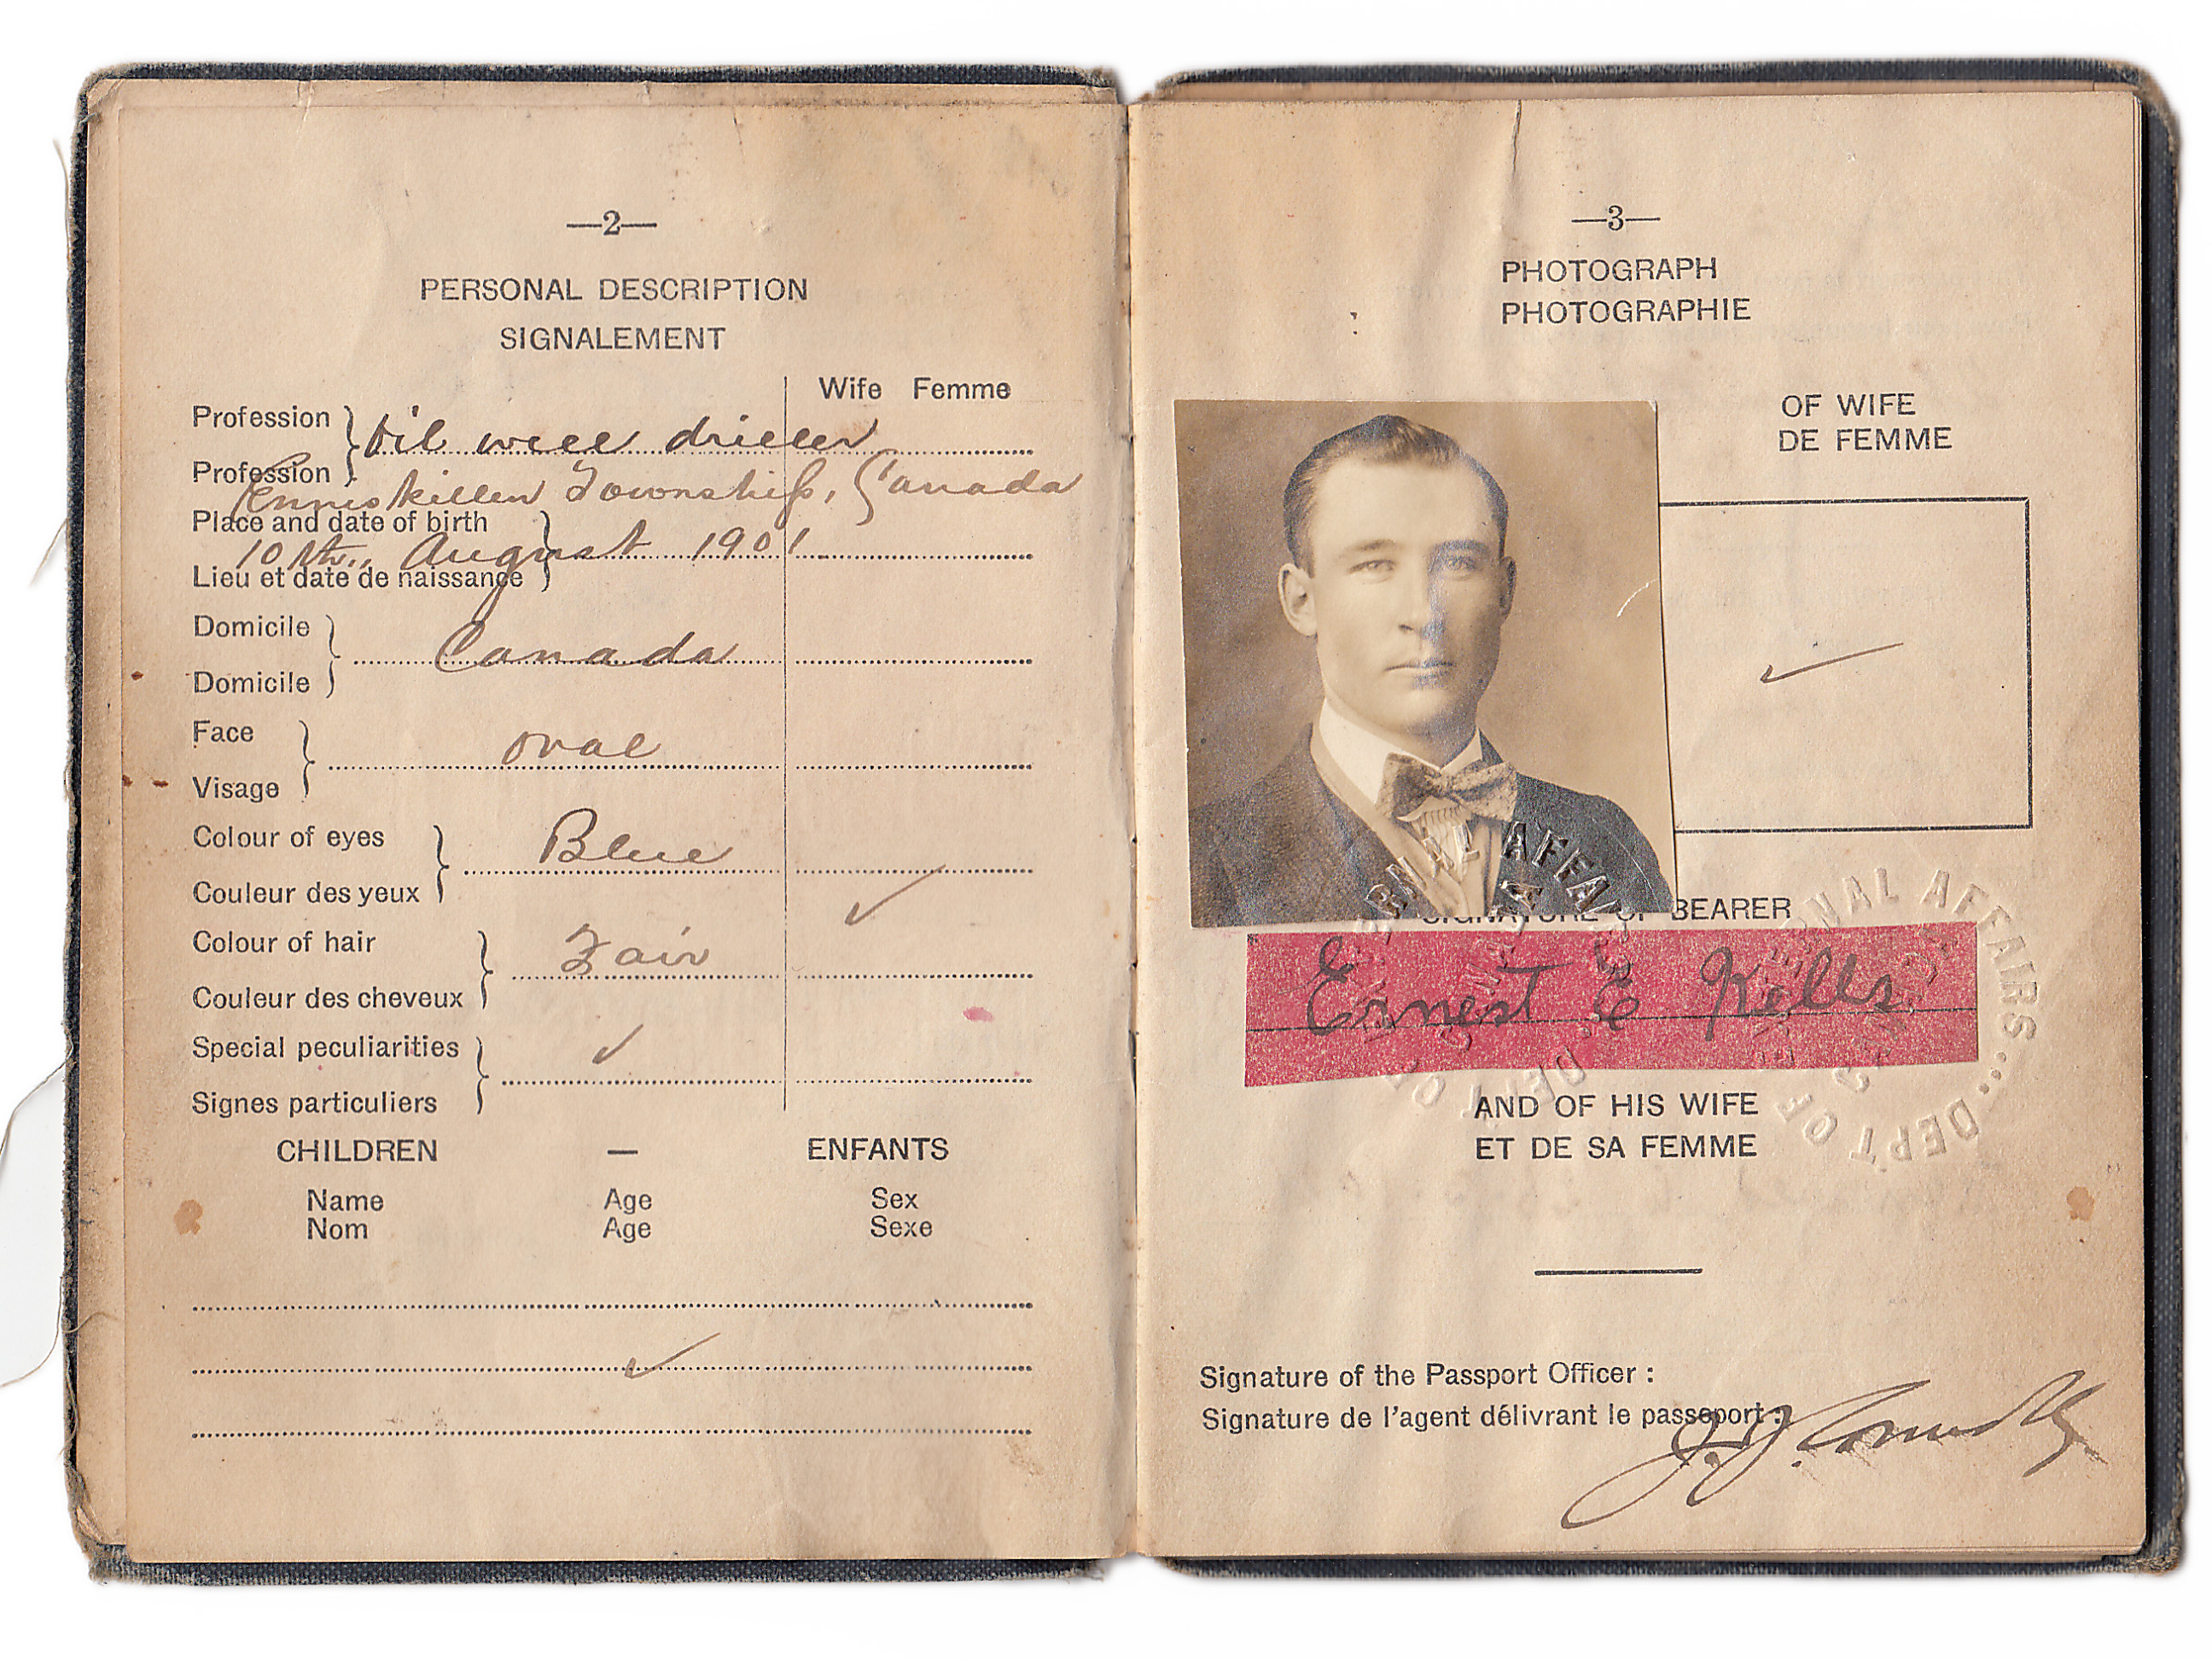 —2—
PERSONAL DESCRIPTION
SIGNALEMENT
Wife Femme
Profession
Oil well driller
Profession
Enniskillen Township, Canada
Place and date of birth
10th., August 1901
Lieu et date de naissance
Domicile
Canada
Domicile
Face
oval
Visage
Colour of eyes
Blue
Couleur des yeux
Colour of hair
Fair
Couleur des cheveux
Special peculiarities
Signes particuliers
CHILDREN — ENFANTS
Name Age Sex
Nom Age Sexe
—3—
PHOTOGRAPH
PHOTOGRAPHIE
OF WIFE
DE FEMME
SIGNATURE OF BEARER
Ernest E Kells
AND OF HIS WIFE
ET DE SA FEMME
NAL AFFAIRS... DEPT OF
Signature of the Passport Officer :
Signature de l'agent délivrant le passeport :